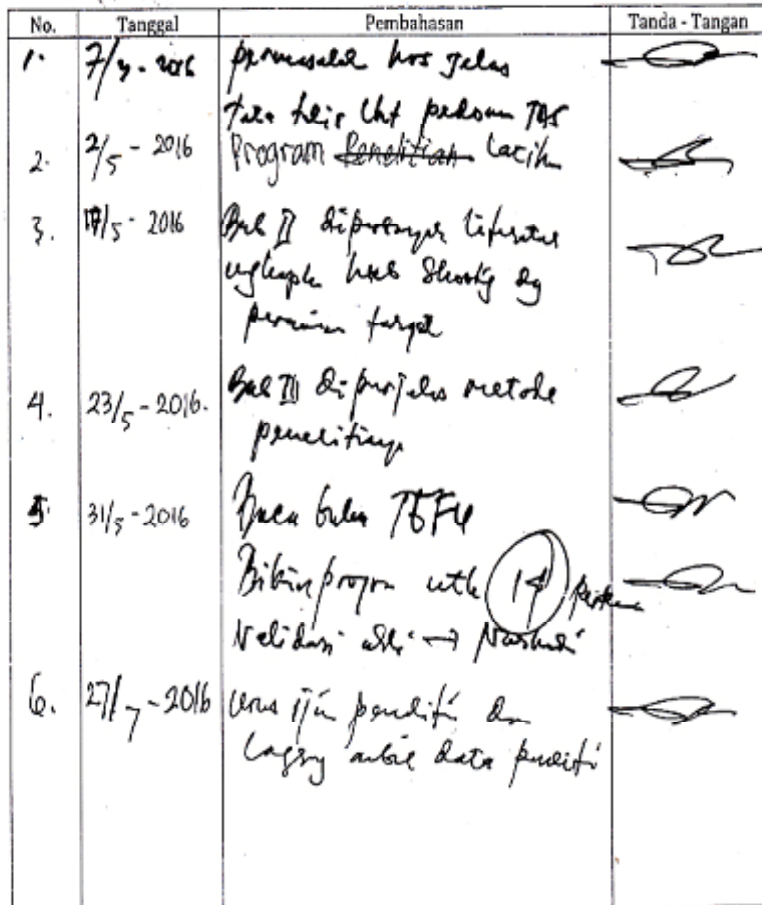 No. Tanggal Pembahasan Tanda - Tangan
1. 7/4 - 2016 permasalah hrs jelas
tata tulis lht pedoman TAS
2. 2/5 - 2016 Program Penelitian Latih
3. 17/5 - 2016 Bab II diperbanyak literatur
ungkapk hub Shootig dg
permain target
4. 23/5 - 2016. Bab III diperjelas metode
penelitiannya
5. 31/5 - 2016 Baca buku TGFU
Bikin program utk 14 pertem
Validasi ahli →
6. 27/7 - 2016 Urus ijin peneliti dan
langsg ambil data peneliti